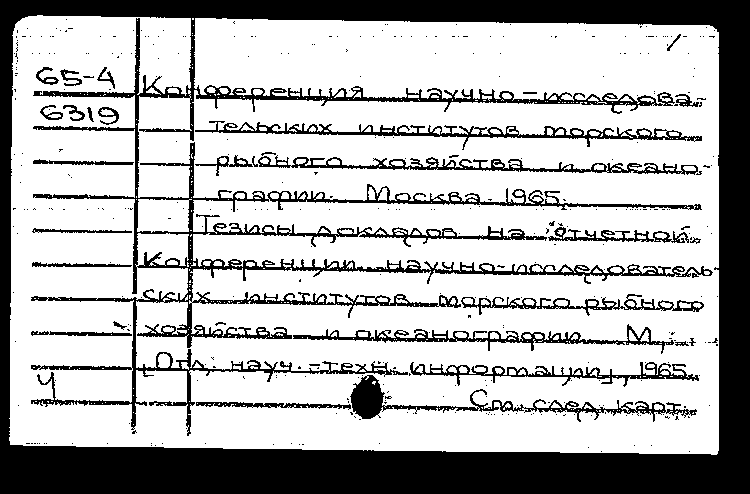 /
65-4 Конференция научно-исследова-
6319 тельских институтов морского
рыбного хозяйства и океано-
графии. Москва. 1965.
Тезисы докладов на отчетной
Конференции научно-исследователь-
ских институтов морского рыбного
хозяйства и океанографии. М.,
[Отд. науч.-техн. информации], 1965.
Ч См. след. карт.